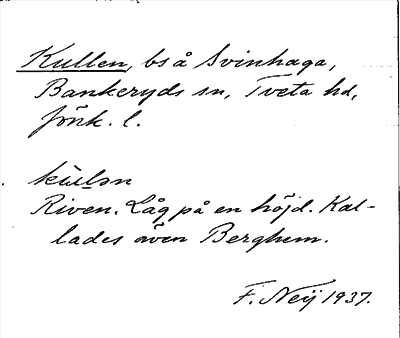 Kullen, bs å Svinhaga,
Bankeryds sn, Tveta hd,
Jönk. l.
kùlən
Riven. Låg på en höjd. Kal-
lades även Berghem.
F. Neij 1937.